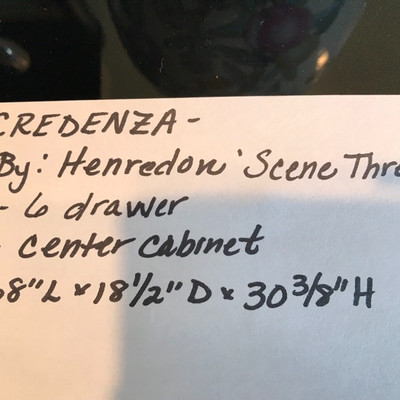 CREDENZA -
By: Henredon 'Scene Thre
- 6 drawer
- center cabinet
68"L x 18 1/2" D x 30 3/8" H